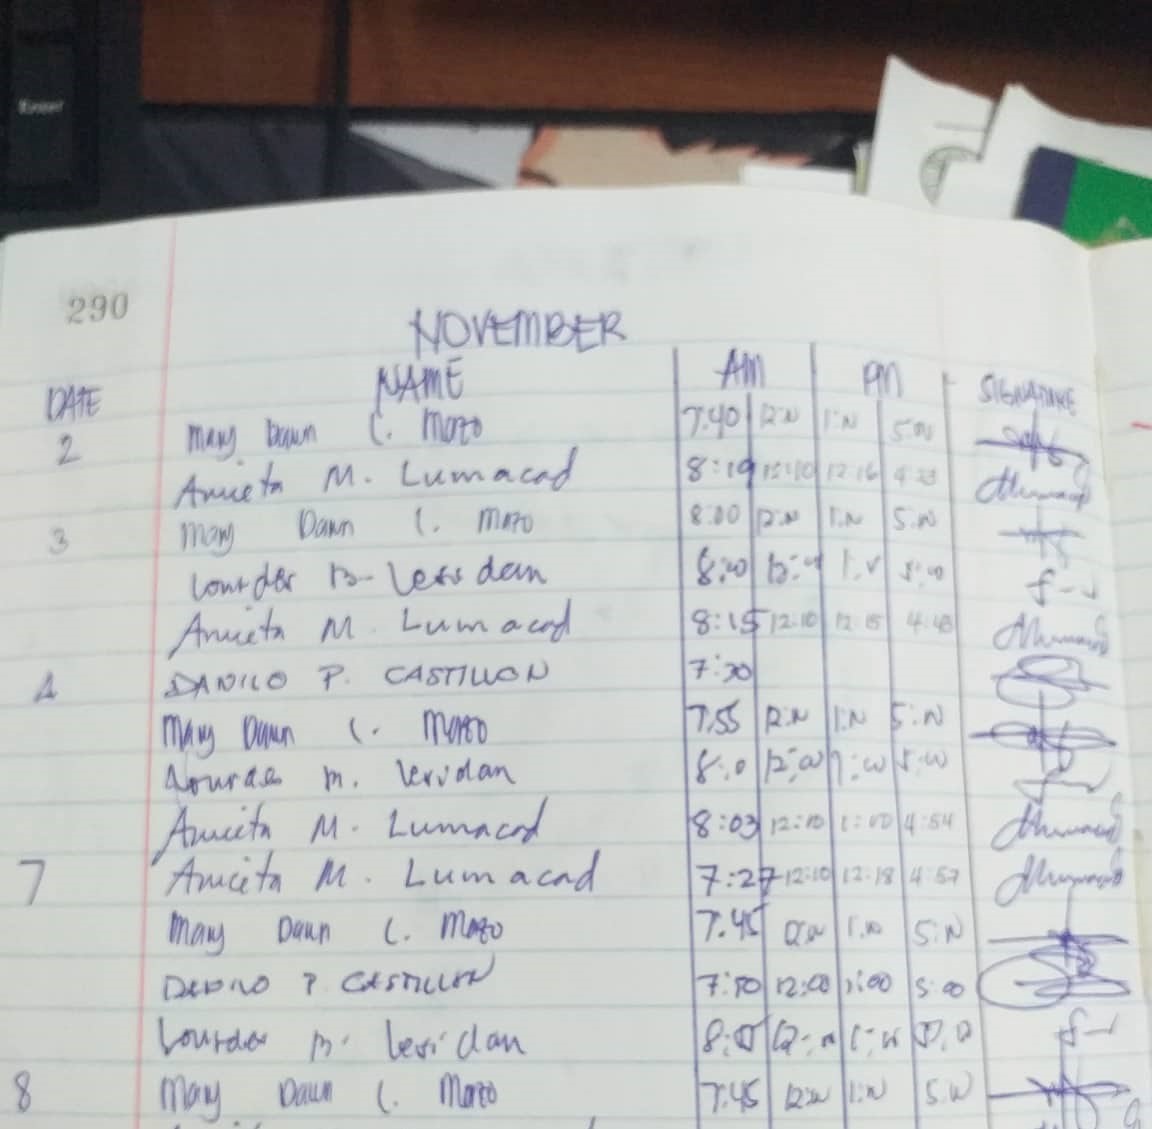 Enter
290
NOVEMBER
DATE NAME AM PM SIGNATURE
2 Mary Dawn C. Mozo 7:40 12:N 1:N 5:00
Anieta M. Lumacad 8:19 12:10 12:16 4:33
3 Mary Dawn C. Mozo 8:00 12:N 1:N 5:N
Lourdes B. 8:00
Anieta M. Lumacad 8:15 12:10 12:15 4:48
4 DANILO P. CASTILLON 7:30
Mary Dawn C. Mozo 7:55 12:N 1:N 5:N
Lourdes M. 12:00 1:00 5:00
Aniceta M. Lumacad 8:03 12:10 1:00 4:54
7 Aniceta M. Lumacad 7:27 12:10 12:18 4:57
Mary Dawn C. Mozo 7:45 5:N
DANILO P. CASTILLON 7:50 12:00 1:00 5:00
Lourdes B.
8 Mary Dawn C. Mozo 7:45 12:N 1:N 5:N